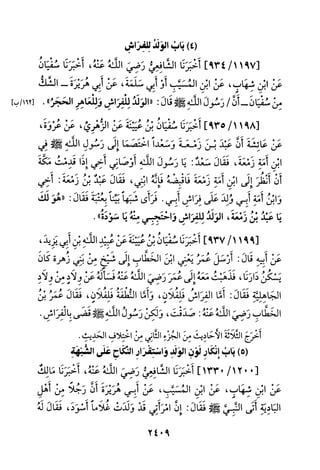 (٤) بَابُ الوَلَدُ لِلفِرَاشِ
[٩٣٤/١١٩٧] أَخْبَرَنَا الشَّافِعِيُّ رَضِيَ اللَّهُ عَنْهُ، أَخْبَرَنَا سُفْيَانُ
عَنْ ابْنِ شِهَابٍ، عَنْ ابْنِ المُسَيَّبِ أَوْ أَبِي سَلَمَةَ، عَنْ أَبِي هُرَيْرَةَ - الشَّكُّ
مِنْ سُفْيَانَ - أَنَّ / رَسُولَ اللَّهِ ﷺ قَالَ: «الوَلَدُ لِلْفِرَاشِ وَلِلْعَاهِرِ الحَجَرُ». [١٦٢/ب]
[٩٣٥/١١٩٨] أَخْبَرَنَا سُفْيَانُ بْنُ عُيَيْنَةَ عَنْ الزُّهْرِيِّ، عَنْ عُرْوَةَ،
عَنْ عَائِشَةَ أَنَّ عَبْدَ بْنَ زَمْعَةَ وَسَعْداً اخْتَصَمَا إِلَى رَسُولِ اللَّهِ ﷺ فِي
ابْنِ أَمَةِ زَمْعَةَ، فَقَالَ سَعْدٌ: يَا رَسُولَ اللَّهِ أَوْصَانِي أَخِي إِذَا قَدِمْتُ مَكَّةَ
أَنْ أَنْظُرَ إِلَى ابْنِ أَمَةِ زَمْعَةَ فَاقْبِضْهُ فَإِنَّهُ ابْنِي، فَقَالَ عَبْدُ بْنُ زَمْعَةَ: أَخِي
وَابْنُ أَمَةِ أَبِي وُلِدَ عَلَى فِرَاشِ أَبِي. فَرَأَى شَبَهاً بَيِّناً بِعُتْبَةَ فَقَالَ: «هُوَ لَكَ
يَا عَبْدُ بْنُ زَمْعَةَ، الوَلَدُ لِلْفِرَاشِ وَاحْتَجِبِي مِنْهُ يَا سَوْدَةُ».
[٩٣٧/١١٩٩] أَخْبَرَنَا سُفْيَانُ بْنُ عُيَيْنَةَ عَنْ عُبَيْدِ اللَّهِ بْنِ أَبِي يَزِيدَ،
عَنْ أَبِيهِ قَالَ: أَرْسَلَ عُمَرُ يَعْنِي ابْنَ الخَطَّابِ إِلَى شَيْخٍ مِنْ بَنِي زُهْرَةَ كَانَ
يَسْكُنُ دَارَنَا، فَذَهَبْتُ مَعَهُ إِلَى عُمَرَ رَضِيَ اللَّهُ عَنْهُ فَسَأَلَهُ عَنْ وِلَادٍ مِنْ وِلَادِ
الجَاهِلِيَّةِ فَقَالَ: أَمَّا الفِرَاشُ فَلِفُلَانٍ، وَأَمَّا النُّطْفَةُ فَلِفُلَانٍ، فَقَالَ عُمَرُ بْنُ
الخَطَّابِ رَضِيَ اللَّهُ عَنْهُ: صَدَقْتَ، وَلَكِنْ رَسُولُ اللَّهِ ﷺ قَضَى بِالْفِرَاشِ.
أَخْرَجَ الثَّلَاثَةَ الأَحَادِيثَ مِنَ الجُزْءِ الثَّانِي مِنْ اخْتِلَافِ الحَدِيثِ.
(٥) بَابُ إِنْكَارِ لَوْنِ الوَلَدِ وَاسْتِقْرَارِ النِّكَاحِ عَلَى الشُّبْهَةِ
[١٣٣٠/١٢٠٠] أَخْبَرَنَا الشَّافِعِيُّ رَضِيَ اللَّهُ عَنْهُ، أَخْبَرَنَا مَالِكٌ
عَنْ ابْنِ شِهَابٍ، عَنْ ابْنِ المُسَيَّبِ، عَنْ أَبِي هُرَيْرَةَ أَنَّ رَجُلاً مِنْ أَهْلِ
البَادِيَةِ أَتَى النَّبِيَّ ﷺ فَقَالَ: إِنَّ امْرَأَتِي قَدْ وَلَدَتْ غُلَاماً أَسْوَدَ، فَقَالَ لَهُ
٢٤٠٩